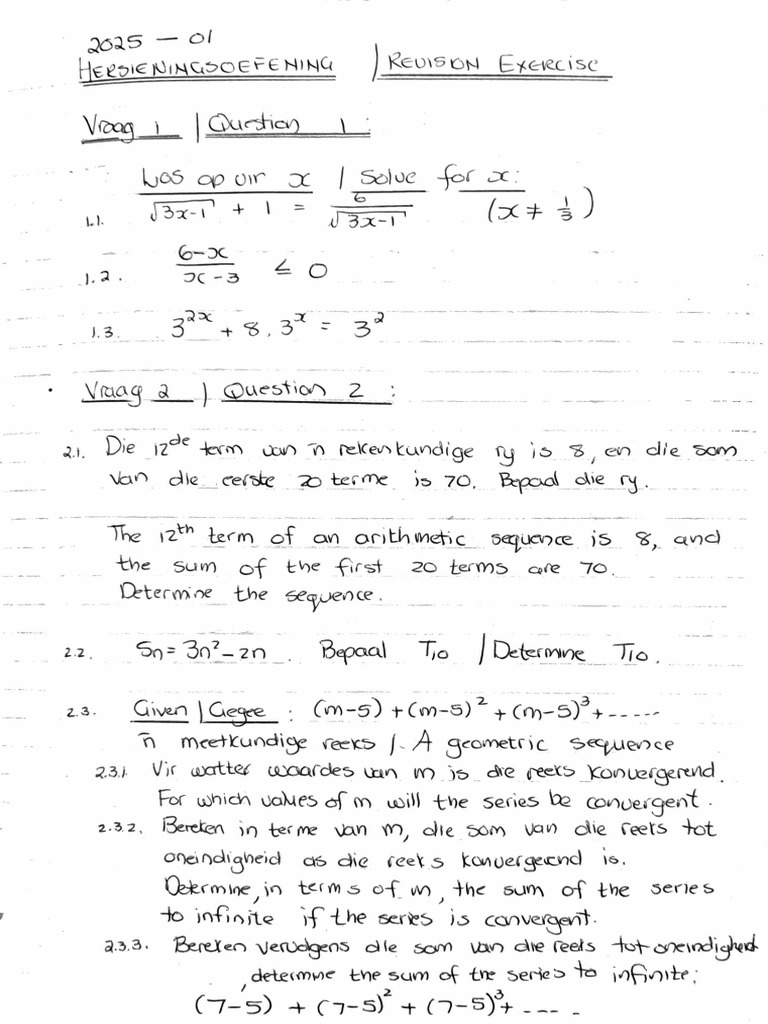 2025 – 01
HERSIENINGSOEFENING / REVISION EXERCISE
Vraag 1 / Question 1:
Los op vir x / Solve for x:
1.1. √(3x-1) + 1 = 6/√(3x-1) (x ≠ 1/3)
1.2. (6-x)/(x-3) ≤ 0
1.3. 3^(2x) + 8.3^x = 3^2
Vraag 2 / Question 2:
2.1. Die 12de term van 'n rekenkundige ry is 8, en die som
van die eerste 20 terme is 70. Bepaal die ry.
The 12th term of an arithmetic sequence is 8, and
the sum of the first 20 terms are 70.
Determine the sequence.
2.2. Sn = 3n² – 2n. Bepaal T10 / Determine T10.
2.3. Given / Gegee : (m-5) + (m-5)² + (m-5)³ + ......
'n meetkundige reeks /. A geometric sequence
2.3.1. Vir watter waardes van m is die reeks konvergerend.
For which values of m will the series be convergent.
2.3.2. Bereken in terme van m, die som van die reeks tot
oneindigheid as die reeks konvergerend is.
Determine, in terms of m, the sum of the series
to infinite if the series is convergent.
2.3.3. Bereken vervolgens die som van die reeks tot oneindigheid
, determine the sum of the series to infinite:
(7-5) + (7-5)² + (7-5)³ + .....